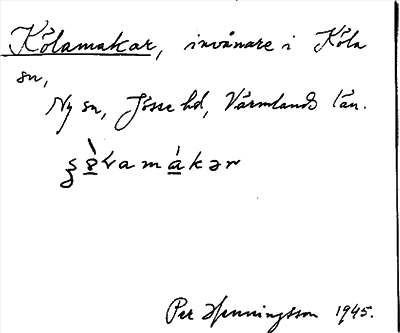 Kölamakar, invånare i Köla
sn,
Ny sn, Jösse hd, Värmlands län.
Per Henningsson 1945.